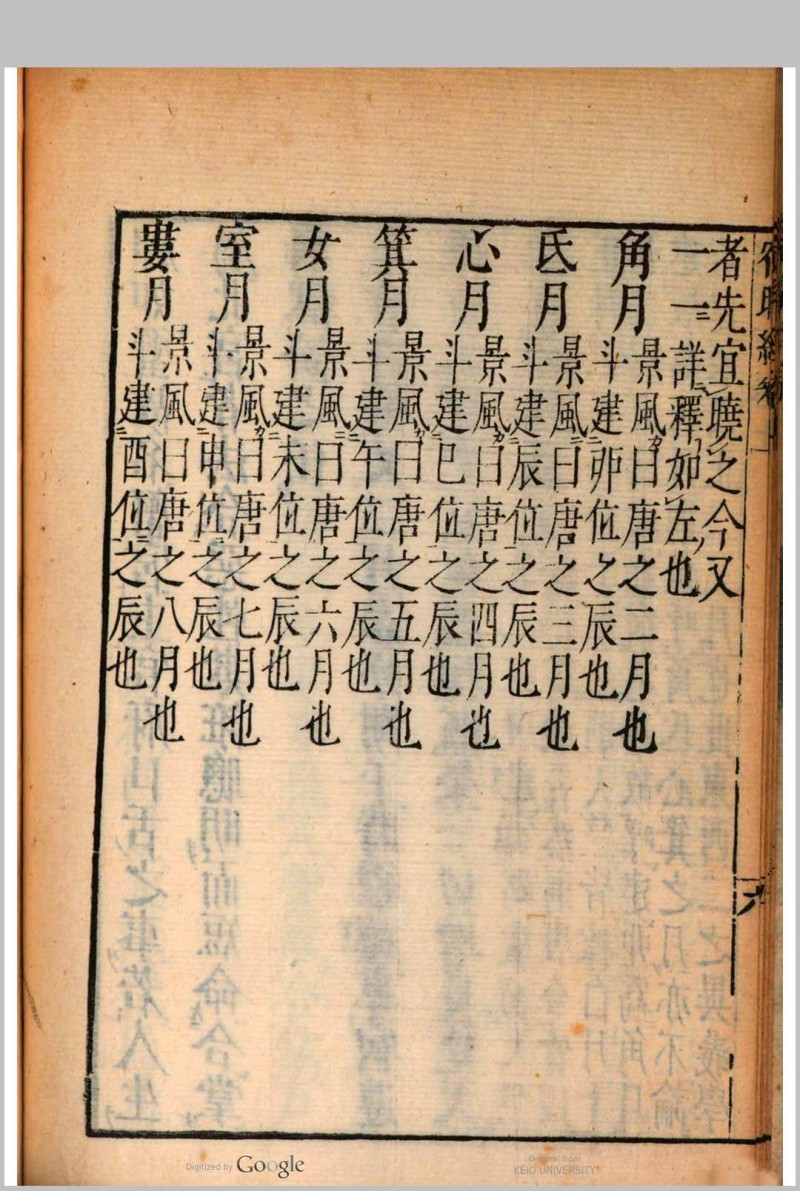 宿曜經卷上
者先宜曉之今又
一一詳釋如左也
角月 景風曰唐之二月也
斗建卯位之辰也
氐月 景風曰唐之三月也
斗建辰位之辰也
心月 景風曰唐之四月也
斗建巳位之辰也
箕月 景風曰唐之五月也
斗建午位之辰也
女月 景風曰唐之六月也
斗建未位之辰也
室月 景風曰唐之七月也
斗建申位之辰也
婁月 景風曰唐之八月也
斗建酉位之辰也
Digitized by Google
Original from
KEIO UNIVERSITY